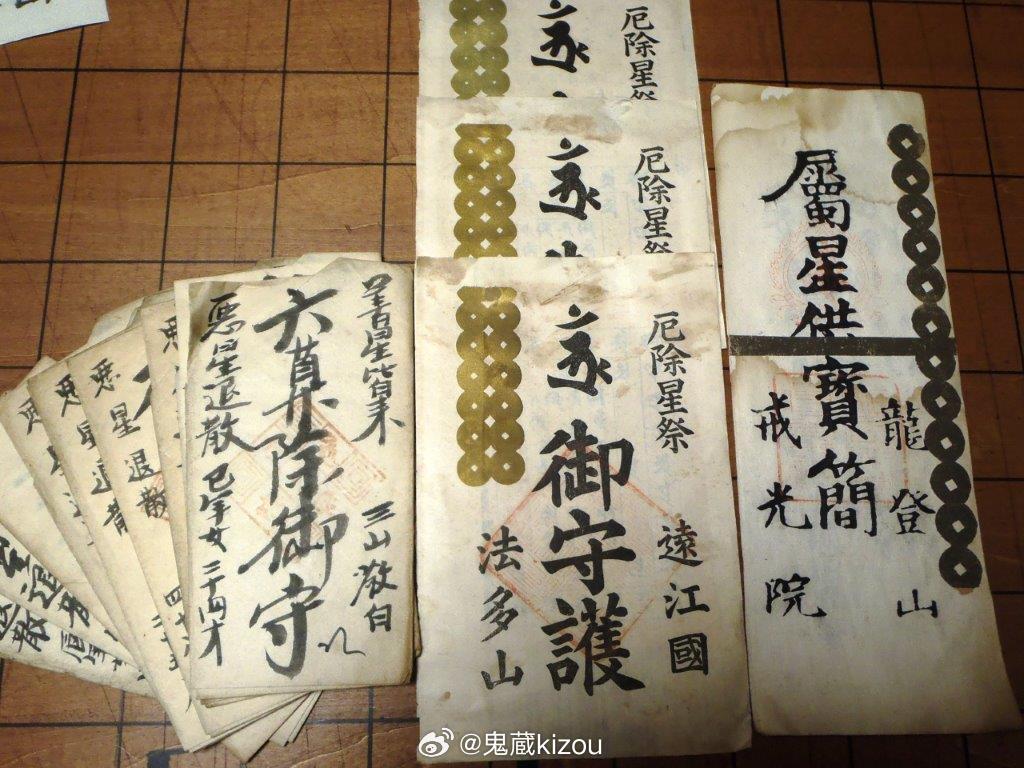 龍登山
屬星供寶簡
戒光院
厄除星祭
厄除星祭
厄除星祭
遠江國
御守護
法多山
善星皆来
三山敬白
六算除御守
悪星退散 巳年女 三十四才
悪星退散
@鬼蔵kizou